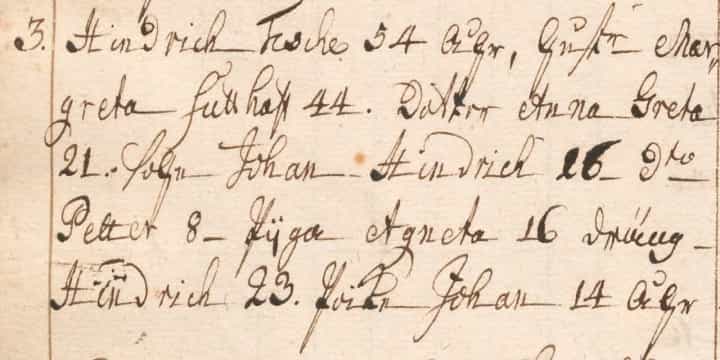 3. Hindrich Tesche 54 åhr, hustr Mar,,
greta Futthoff 44. Dotter Anna Greta
21. Sohn Johan Hindrich 16 dto
Petter 8 – Pijga Agneta 16 dräng
Hindrich 23. Poike Johan 14 åhr